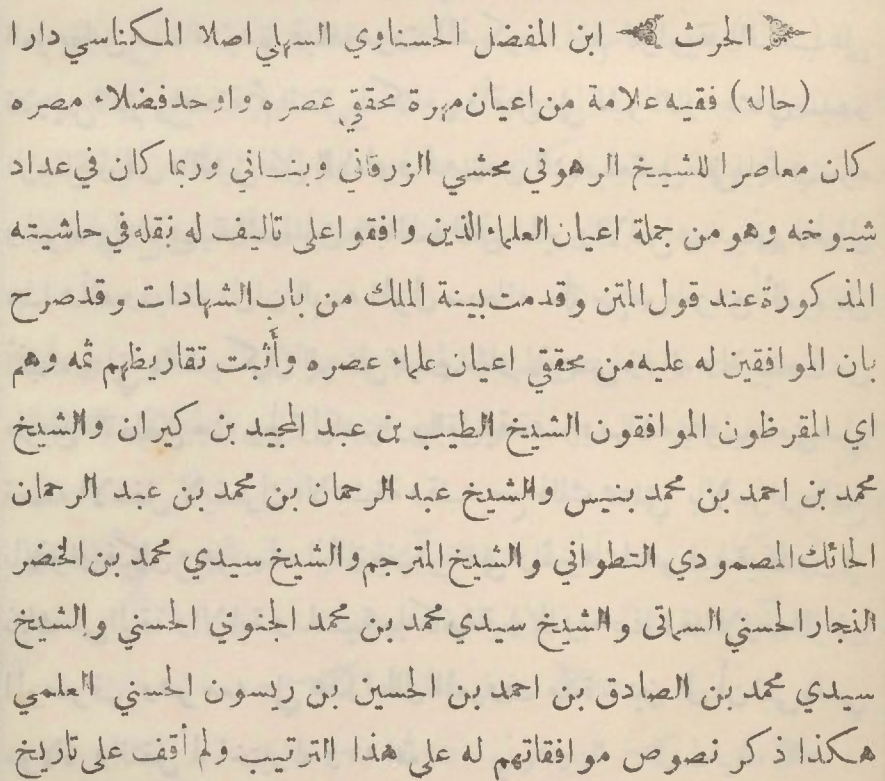 الحرث ابن المفضل الحسناوي السهلي اصلا المكناسي دارا
(حاله) فقيه علامة من اعيان مهرة محققي عصره واوحد فضلاء مصره
كان معاصرا للشيخ الرهوني محشي الزرقاني وبناني وربما كان في عداد
شيوخه وهو من جملة اعيان العلماء الذين وافقوا على تاليف له نقله في حاشيته
المذكورة عند قول المتن وقدمت بينة الملك من باب الشهادات وقد صرح
بان الموافقين له عليه من محققي اعيان علماء عصره وأثبت تقاريظهم ثمه وهم
اي المقرظون الموافقون الشيخ الطيب بن عبد المجيد بن كيران والشيخ
محمد بن احمد بن محمد بنيس والشيخ عبد الرحمان بن محمد بن عبد الرحمان
الحائك المصمودي التطواني والشيخ المترجم والشيخ سيدي محمد بن الخضر
النجار الحسني السماتى والشيخ سيدي محمد بن محمد الجنوي الحسني والشيخ
سيدي محمد بن الصادق بن احمد بن الحسين بن ريسون الحسني العلمي
هكذا ذكر نصوص موافقاتهم له على هذا الترتيب ولم أقف على تاريخ